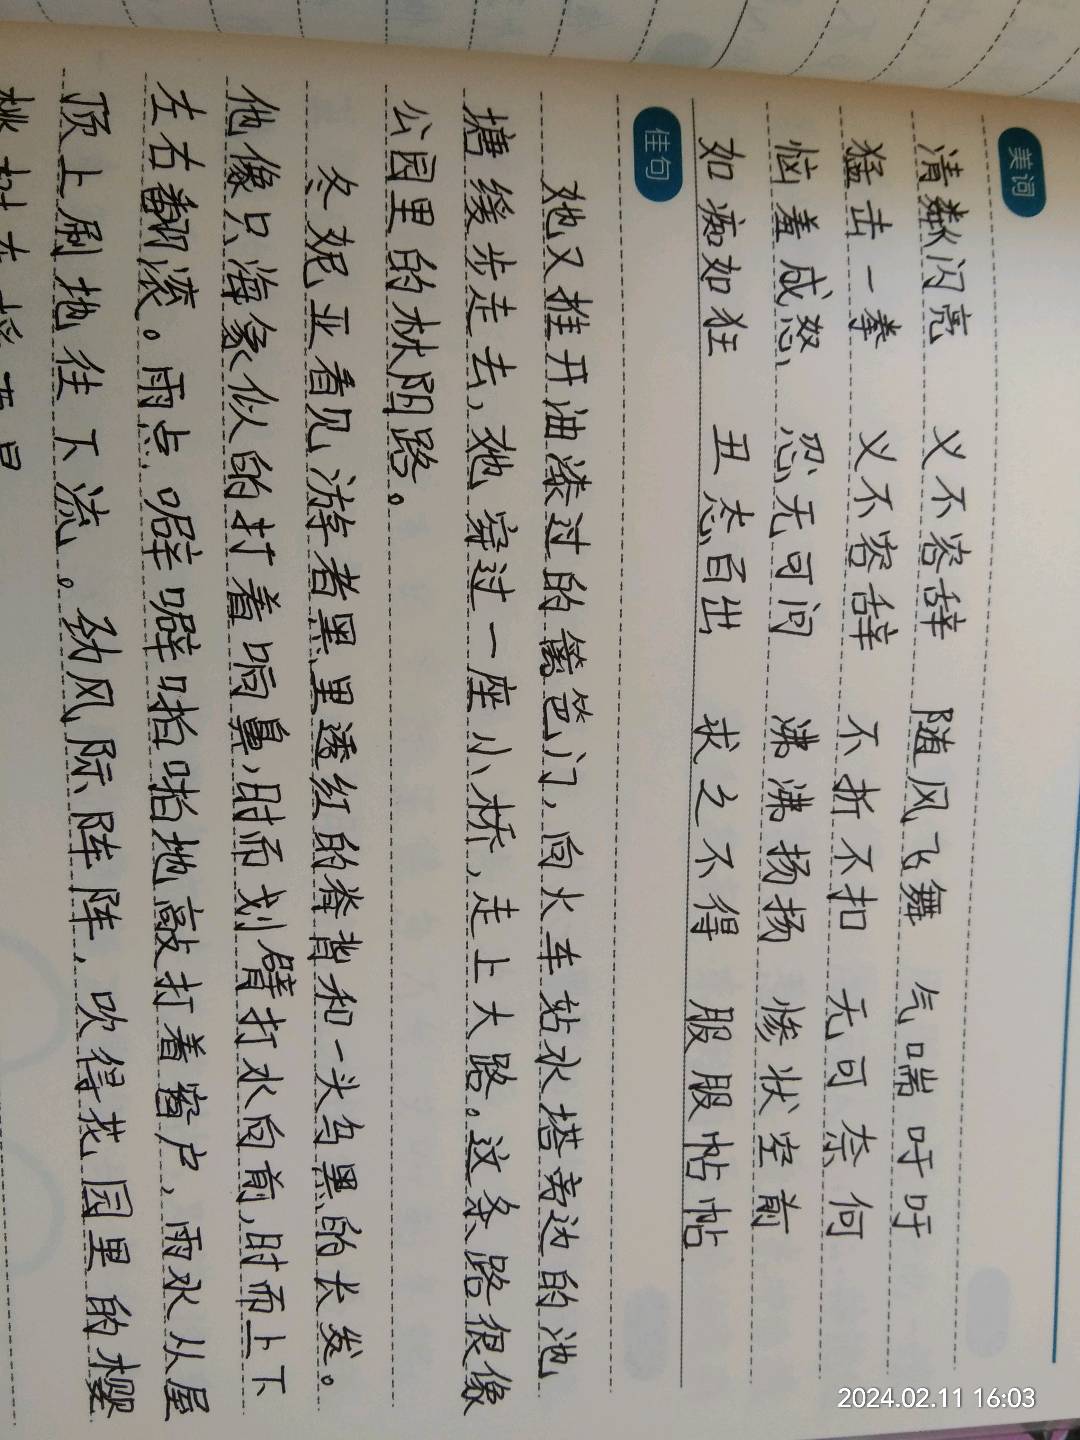 美词
清粼闪亮 义不容辞 随风飞舞 气喘吁吁
猛击一拳 义不容辞 不折不扣 无可奈何
恼羞成怒 忍无可问 沸沸扬扬 惨状空前
如痴如狂 丑态百出 求之不得 服服帖帖
佳句
她又推开油漆过的篱笆门，向火车站水塔旁边的池
塘缓步走去，她穿过一座小桥，走上大路。这条路很像
公园里的林阴路。
冬妮亚看见游者黑里透红的脊背和一头乌黑的长发。
他像只海象似的打着响鼻，时而划臂打水向前，时而上下
左右翻滚。雨点噼噼啪啪地敲打着窗户，雨水从屋
顶上刷地往下流。劲风阵阵，吹得花园里的樱
桃树左摇
2024.02.11 16:03